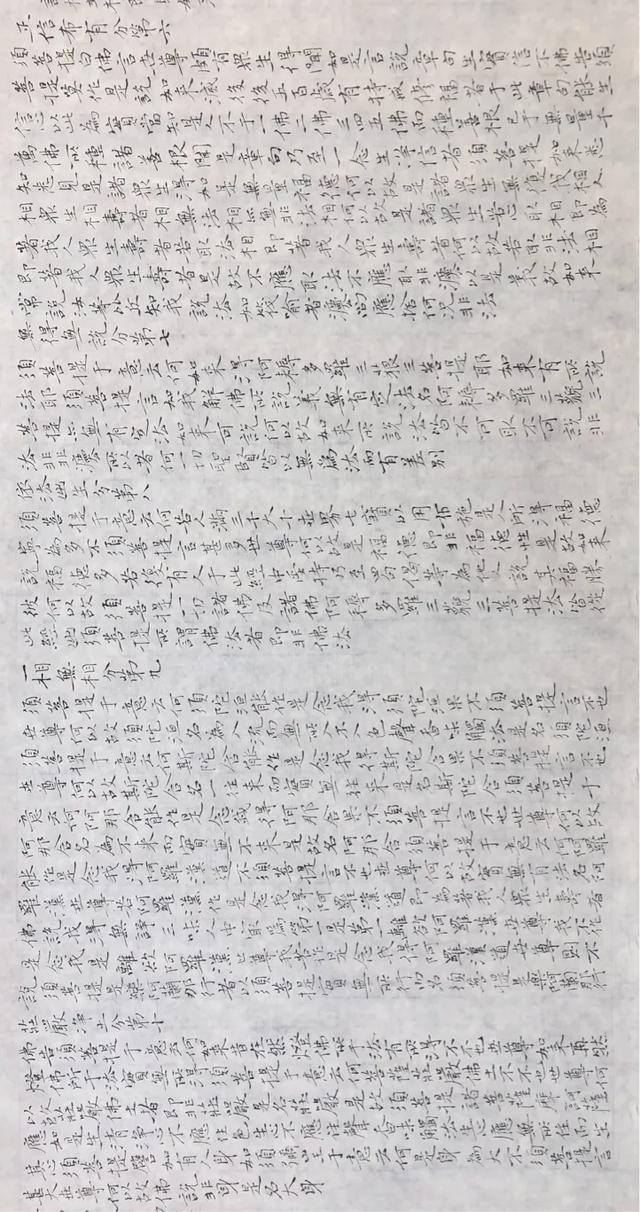 正信希有分第六
須菩提白佛言世尊頗有眾生得聞如是言說章句生實信不佛告須
菩提莫作是說如來滅後後五百歲有持戒修福者于此章句能生
信心以此為實當知是人不于一佛二佛三四五佛而種善根已于無量千
萬佛所種諸善根聞是章句乃至一念生淨信者須菩提如來悉
知悉見是諸眾生得如是無量福德何以故是諸眾生無復我相人
相眾生相壽者相無法相亦無非法相何以故是諸眾生若心取相即為
著我人眾生壽者若取法相即著我人眾生壽者何以故若取非法相
即著我人眾生壽者是故不應取法不應取非法以是義故如來
常說汝等比丘知我說法如筏喻者法尚應捨何況非法
無得無說分第七
須菩提于意云何如來得阿耨多羅三藐三菩提耶如來有所說
法耶須菩提言如我解佛所說義無有定法名阿耨多羅三藐三
菩提亦無有定法如來可說何以故如來所說法皆不可取不可說非
法非非法所以者何一切聖賢皆以無為法而有差別
依法出生分第八
須菩提于意云何若人滿三千大千世界七寶以用布施是人所得福德
寧為多不須菩提言甚多世尊何以故是福德即非福德性是故如來
說福德多若復有人于此經中受持乃至四句偈等為他人說其福勝
彼何以故須菩提一切諸佛及諸佛阿耨多羅三藐三菩提法皆從
此經出須菩提所謂佛法者即非佛法
一相無相分第九
須菩提于意云何須陀洹能作是念我得須陀洹果不須菩提言不也
世尊何以故須陀洹名為入流而無所入不入色聲香味觸法是名須陀洹
須菩提于意云何斯陀含能作是念我得斯陀含果不須菩提言不也
世尊何以故斯陀含名一往來而實無往來是名斯陀含須菩提于
意云何阿那含能作是念我得阿那含果不須菩提言不也世尊何以故
阿那含名為不來而實無不來是故名阿那含須菩提于意云何阿羅漢
能作是念我得阿羅漢道不須菩提言不也世尊何以故實無有法名阿
羅漢世尊若阿羅漢作是念我得阿羅漢道即為著我人眾生壽者
佛說我得無諍三昧人中最為第一是第一離欲阿羅漢世尊我不作
是念我是離欲阿羅漢世尊我若作是念我得阿羅漢道世尊則不
說須菩提是樂阿蘭那行者以須菩提實無所行而名須菩提是樂阿蘭那行
莊嚴淨土分第十
佛告須菩提于意云何如來昔在然燈佛所于法有所得不不也世尊如來在然
燈佛所于法實無所得須菩提于意云何菩薩莊嚴佛土不不也世尊何
以故莊嚴佛土者即非莊嚴是名莊嚴是故須菩提諸菩薩摩訶薩
應如是生清淨心不應住色生心不應住聲香味觸法生心應無所住而生
其心須菩提譬如有人身如須彌山王于意云何是身為大不須菩提言
甚大世尊何以故佛說非身是名大身